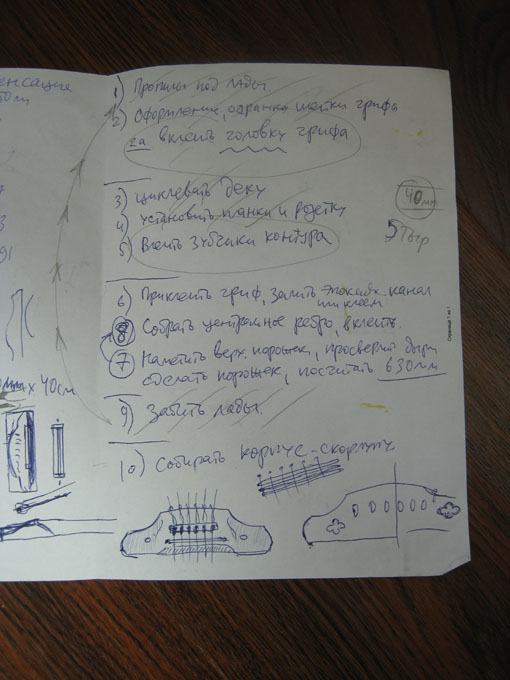 енсация
50 см
1) Пропилы под лады.
2) Оформление, огранка пятки грифа
2а вклеить головку грифа
3) Циклевать деку
4) установить планки и розетку
40 мм
5) Вклеить зубчики контура
5 Тыр
91
6) Приклеить гриф, залить эпоксидк. канал
или клеем
8) Собрать центральное ребро, вклеить.
7) Наметить верх. порожек, просверлить дыры
сделать порожек, посчитать 630 мм
х 40 см
9) Забить лады.
10) Собирать корпус-скорлупу
Страница 1 из 1